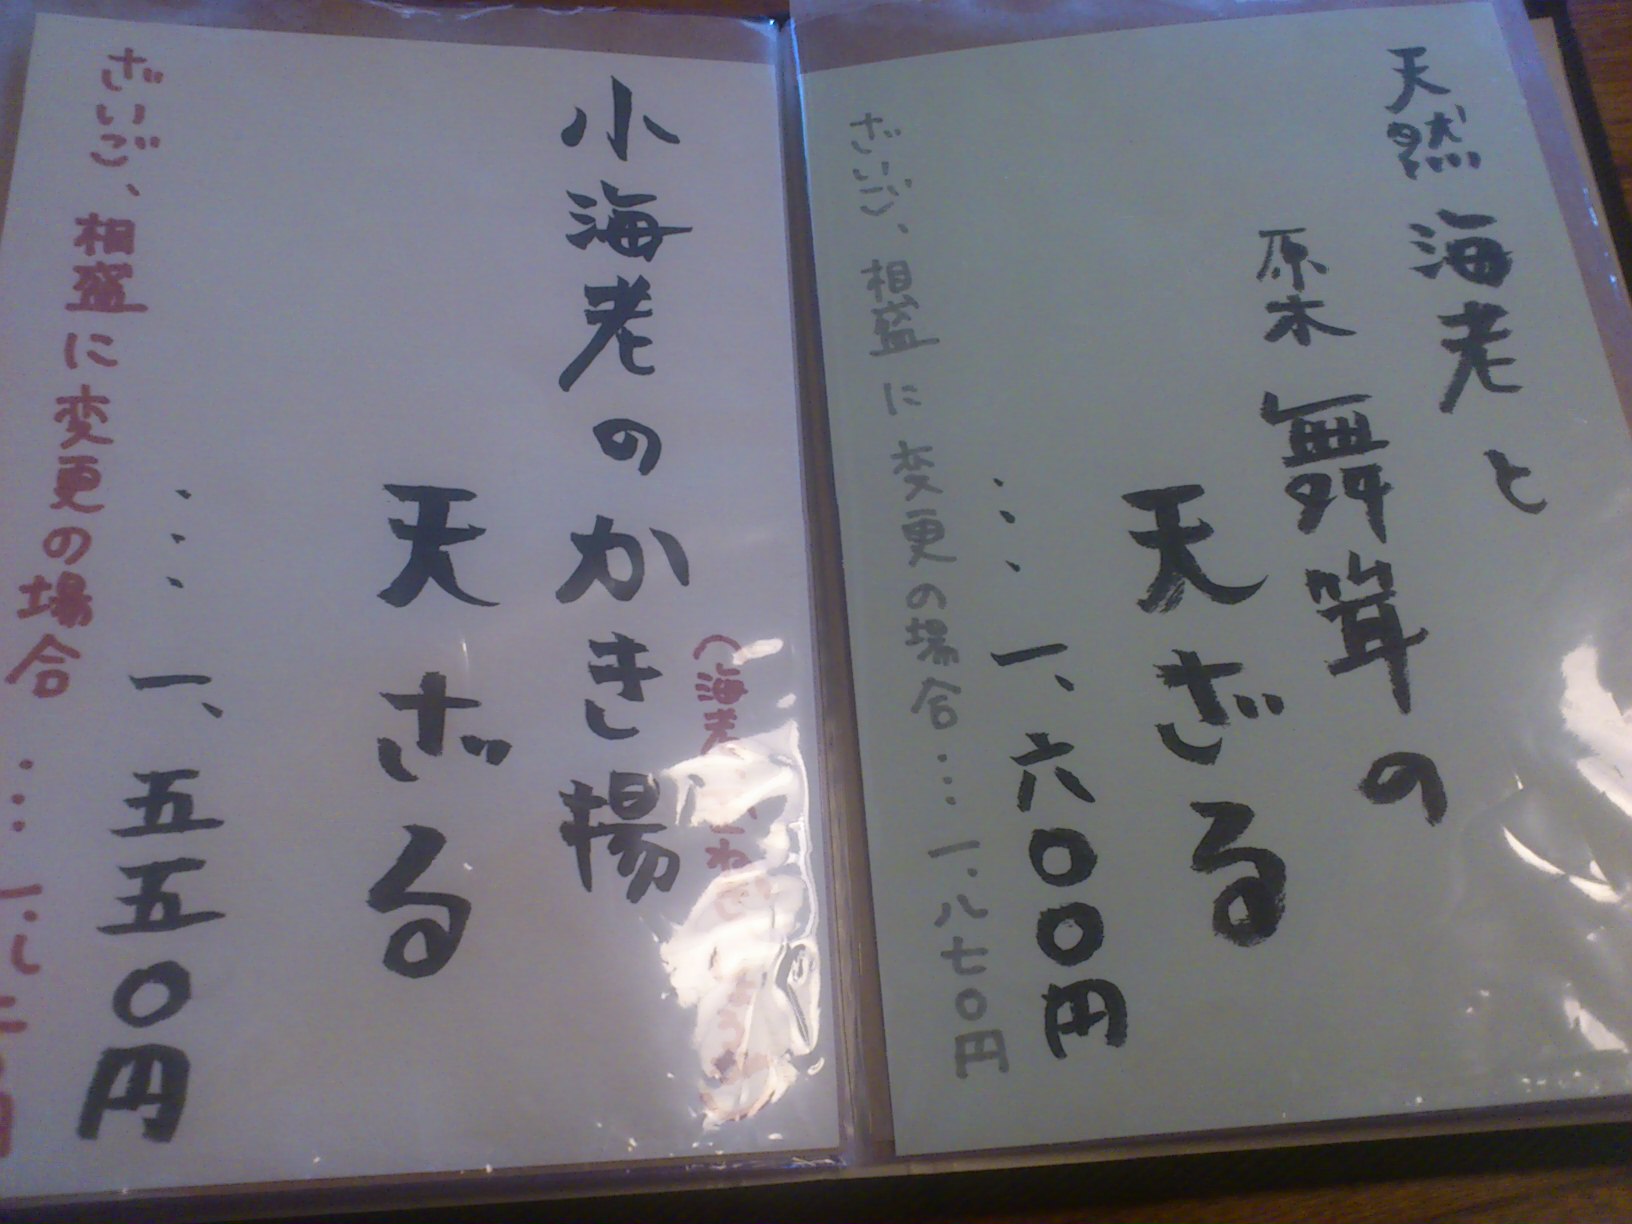 天然海老と
原木舞茸の
天ざる
・・・一、六〇〇円
ざいご、相盛に変更の場合・・・・一、八七〇円
小海老のかき揚
天ざる
・・・一、五五〇円
ざいご、相盛に変更の場合・・・・